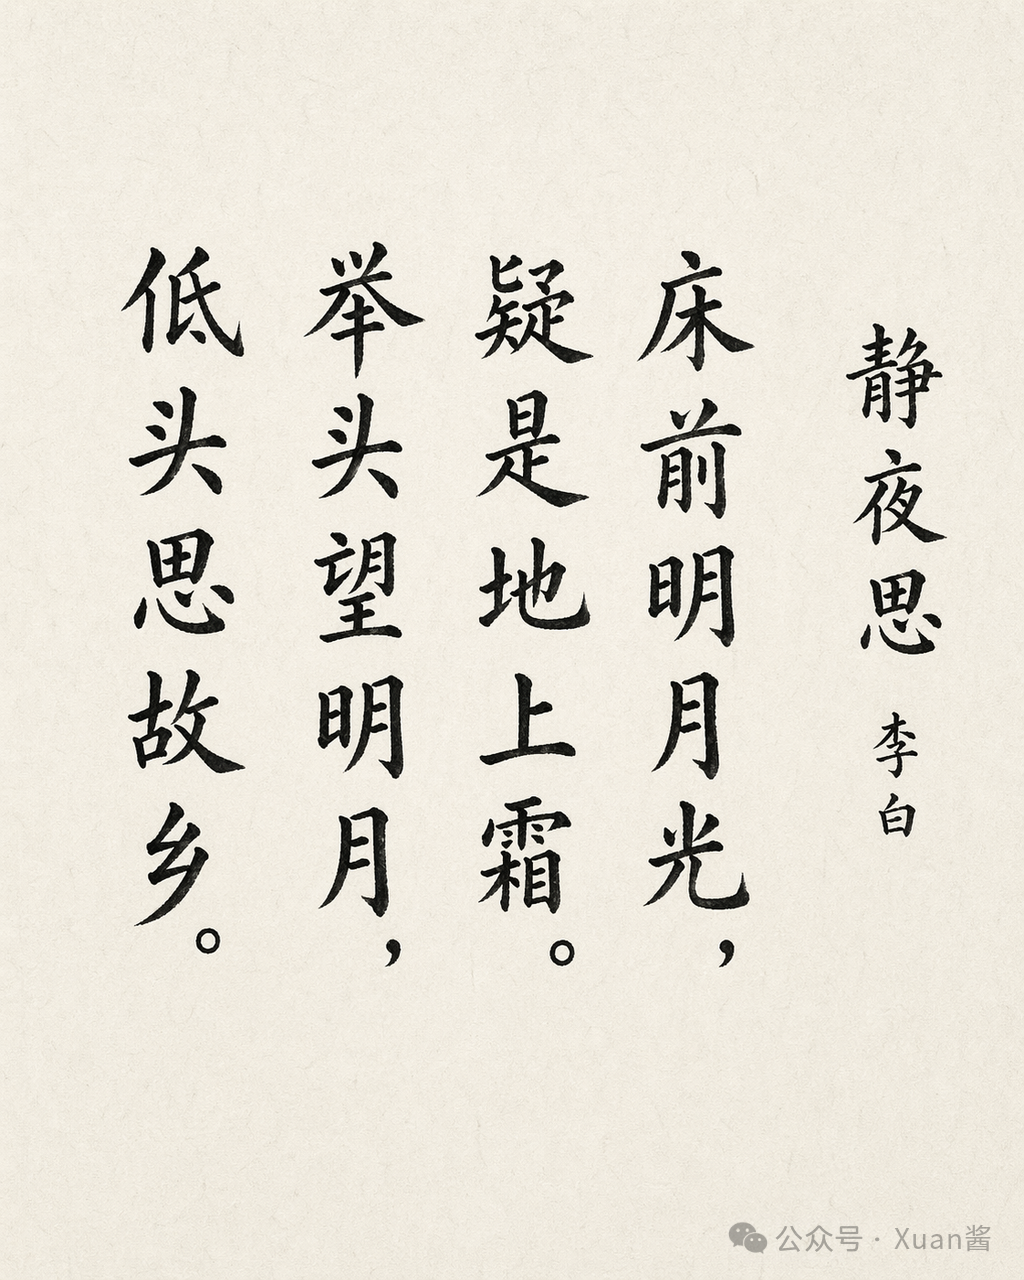 静夜思 李白
床前明月光，
疑是地上霜。
举头望明月，
低头思故乡。
公众号 · Xuan酱